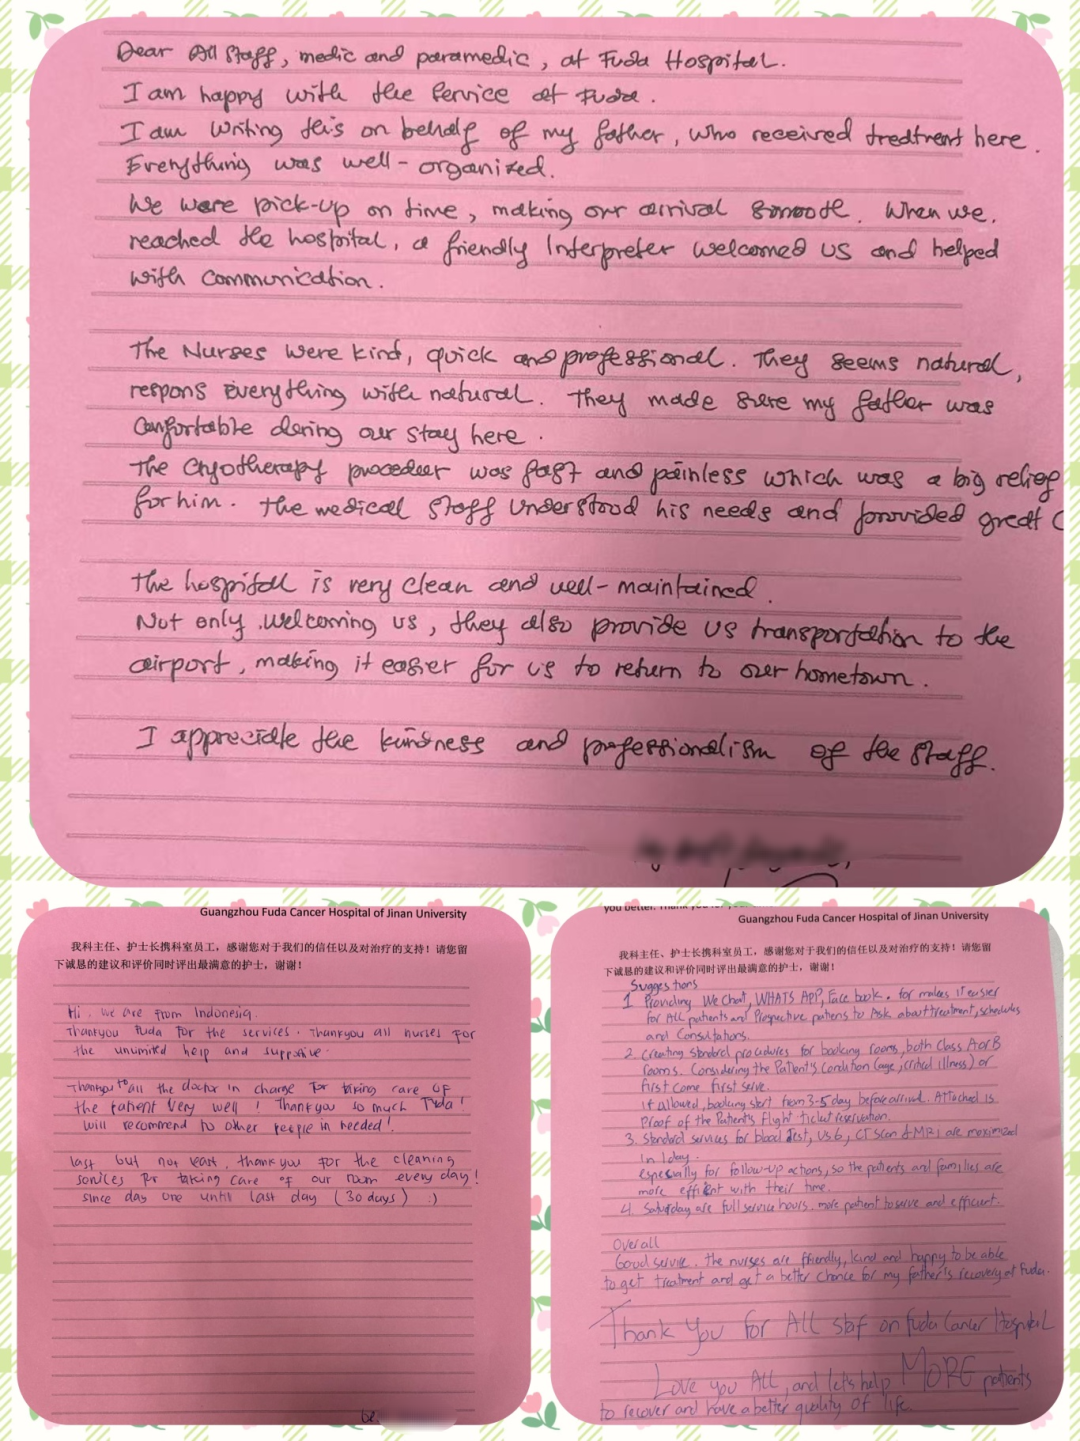 Dear All Staff, medic and paramedic, at Fuda Hospital.
I am happy with the service at Fuda.
I am writing this on behalf of my father, who received treatment here.
Everything was well-organized.
We were pick-up on time, making our arrival smooth. When we,
reached the hospital, a friendly Interpreter welcomed us and helped
with communication.
The Nurses were kind, quick and professional. They seems natural,
respons Everything with natural. They made sure my father was
Confortable dering our stay here.
The Cryotherapy procedeer was fast and painless which was a big relief
for him. The medical staff Understood his needs and provided great
The hospital is very clean and well-maintained.
Not only welcoming us, they also provide us transportation to the
airport, making it easier for us to return to our hometown.
I appreciate the kindness and professionalism of the staff.
Guangzhou Fuda Cancer Hospital of Jinan University
我科主任、护士长携科室员工，感谢您对于我们的信任以及对治疗的支持！请您留
下诚恳的建议和评价同时评出最满意的护士，谢谢！
Hi, we are from Indonesia.
Thankyou Fuda for the services. Thankyou all nurses for
the unlimited help and supportive.
Thankyou to all the doctor in charge for taking care of
the patient very well! Thankyou so much Fuda!
Will recommend to other people in needed!
last but not least, thank you for the cleaning
services for taking care of our room every day!
since day one until last day (30 days) :)
you better.
Guangzhou Fuda Cancer Hospital of Jinan University
我科主任、护士长携科室员工，感谢您对于我们的信任以及对治疗的支持！请您留
下诚恳的建议和评价同时评出最满意的护士，谢谢！
Suggestions
1 Providing We Chat, WHATS APP, Face book. for makes it easier
for All patients and Prospective patiens to Ask about treatment, schedules
and Consultations.
2. Creating standard procedures for booking rooms, both Class A or B
rooms. Considering the Patient's condition (age, critical illness) or
first come first serve.
if allowed, booking start from 3-5 day before arrival. Attached is
Proof of the Patient's flight ticket reservation.
3. Standard services for blood test, USG, CT Scan & MRI are maximized
in 1 day.
especially for follow-up actions, so the patients and families are
more efficient with their time.
4. Saturday are full service hours, more patient to serve and efficient.
Overall
Good service. The nurses are friendly, kind and happy to be able
to get treatment and get a better chance for my father's recovery at Fuda.
Thank You for ALL staf on Fuda Cancer Hospital
Love you ALL, and let's help MORE patients
to recover and have a better quality of life.